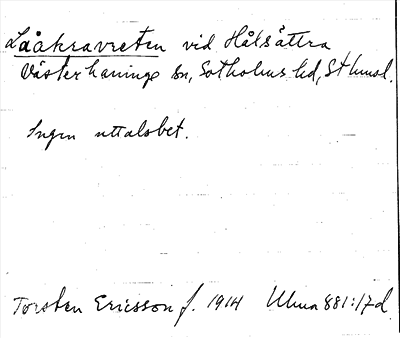 Laåkravreten vid Hålsättra
Västerhaninge sn, Sotholms hd, Sthmsl.
Ingen uttalsbet.
Torsten Ericsson f. 1914 Uluma 881:17d.